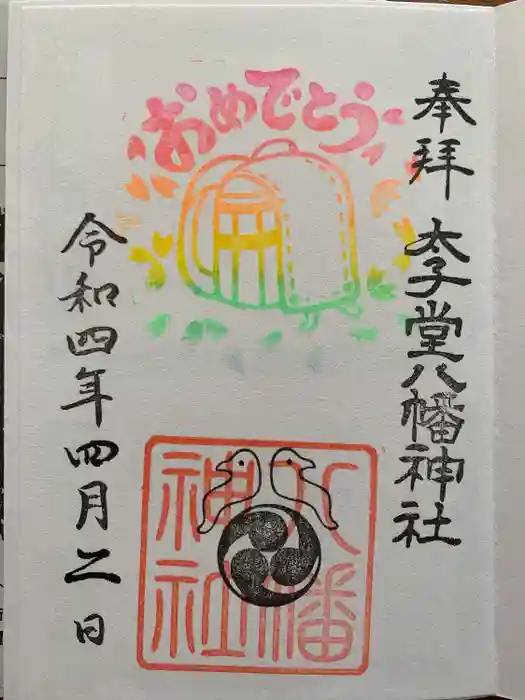 奉拝
太子堂八幡神社
おめでとう
八幡
神社
令和四年四月二日